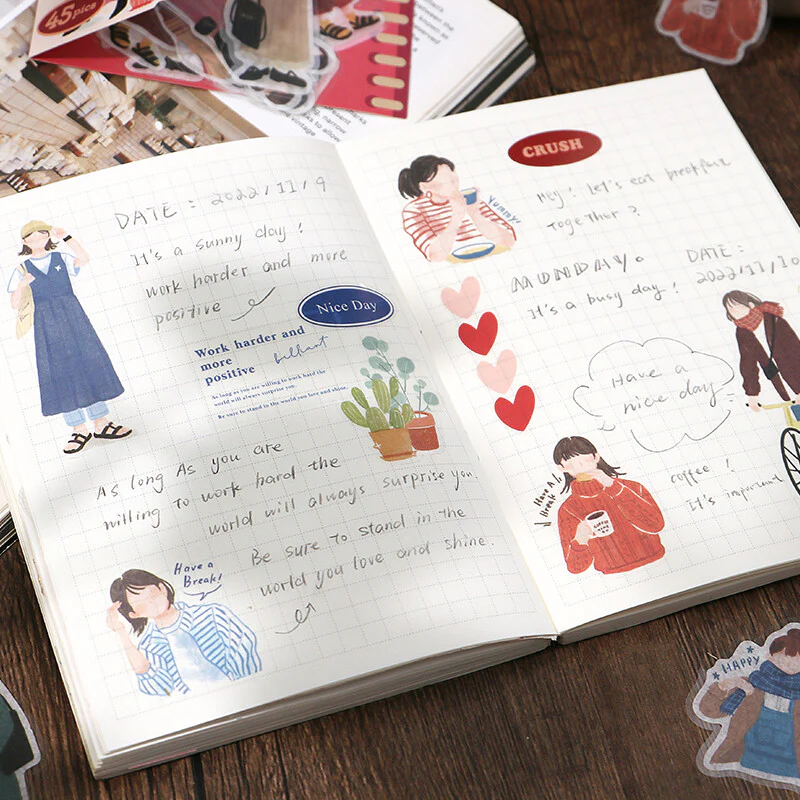 45pcs
DATE : 2022/11/9
It's a sunny day !
work harder and more
positive
Nice Day
Work harder and
more
positive
As long as you are willing to work hard the
world will always surprise you.
Be sure to stand in the world you love and shine.
As long As you are
willing To work hard the
world will always surprise you.
Be sure to stand in the
world you love and shine.
Have a
Break!
CRUSH
Yummy!
Hey! let's eat breakfast
Together ?
MUNDAY.
DATE :
2022/11/10
It's a busy day !
Have a
nice day
Have A
Break
COFFEE
coffee !
It's important
HAPPY